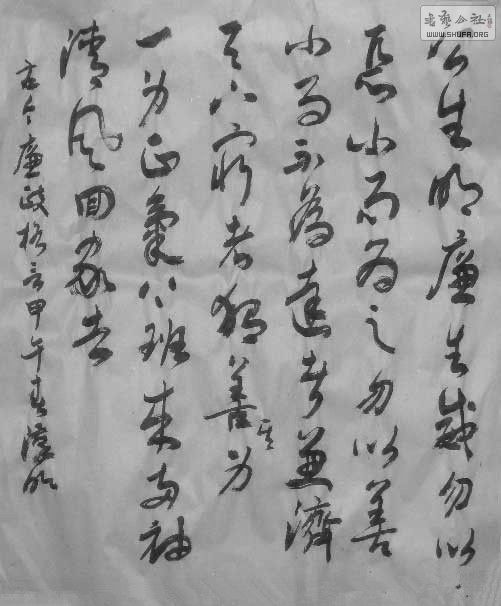 书艺公社
WWW.SHUFA.ORG
公生明廉生威勿以
恶小而为之勿以善
小而不為達者兼濟
天下穷者独善其身
一身正氣上班来两袖
清风回家去
古今廉政格言甲午春